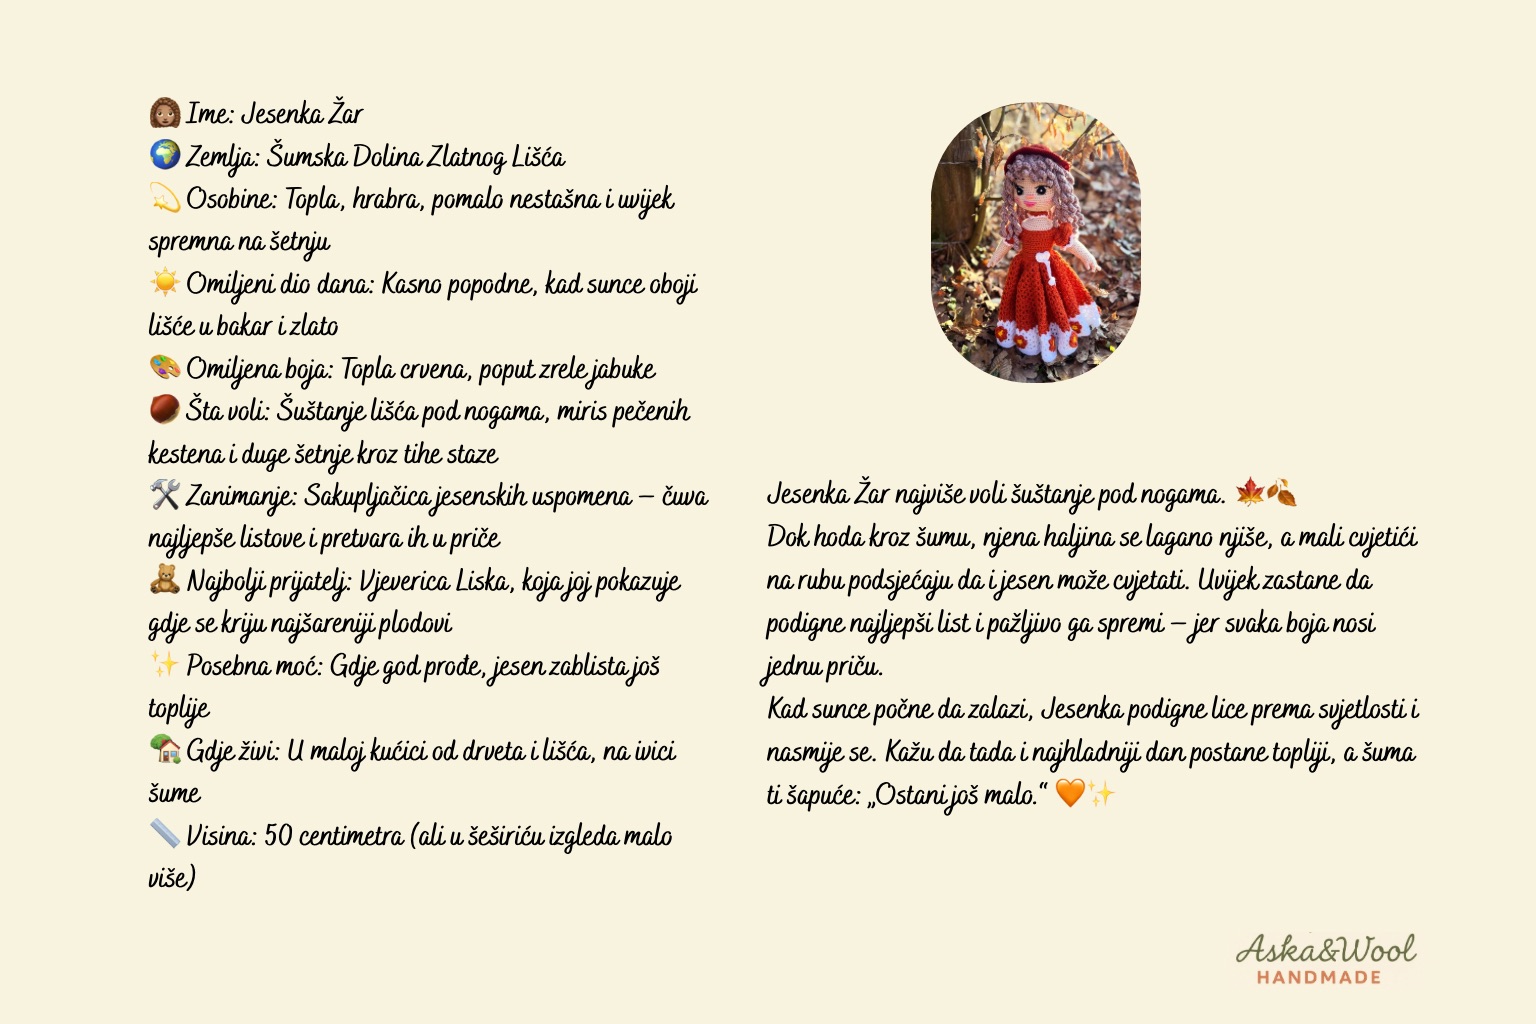 👩🏽‍🦱 Ime: Jesenka Žar
🌍 Zemlja: Šumska Dolina Zlatnog Lišća
💫 Osobine: Topla, hrabra, pomalo nestašna i uvijek
spremna na šetnju
☀️ Omiljeni dio dana: Kasno popodne, kad sunce oboji
lišće u bakar i zlato
🎨 Omiljena boja: Topla crvena, poput zrele jabuke
🌰 Šta voli: Šuštanje lišća pod nogama, miris pečenih
kestena i duge šetnje kroz tihe staze
🛠️ Zanimanje: Sakupljačica jesenskih uspomena – čuva
najljepše listove i pretvara ih u priče
🧸 Najbolji prijatelj: Vjeverica Liska, koja joj pokazuje
gdje se kriju najšareniji plodovi
✨ Posebna moć: Gdje god prođe, jesen zablista još
toplije
🏡 Gdje živi: U maloj kućici od drveta i lišća, na ivici
šume
📏 Visina: 50 centimetra (ali u šeširiću izgleda malo
više)
Jesenka Žar najviše voli šuštanje pod nogama. 🍁🍂
Dok hoda kroz šumu, njena haljina se lagano njiše, a mali cvjetići
na rubu podsjećaju da i jesen može cvjetati. Uvijek zastane da
podigne najljepši list i pažljivo ga spremi – jer svaka boja nosi
jednu priču.
Kad sunce počne da zalazi, Jesenka podigne lice prema svjetlosti i
nasmije se. Kažu da tada i najhladniji dan postane topliji, a šuma
ti šapuće: „Ostani još malo.“ 🧡✨
Aska&Wool
HANDMADE